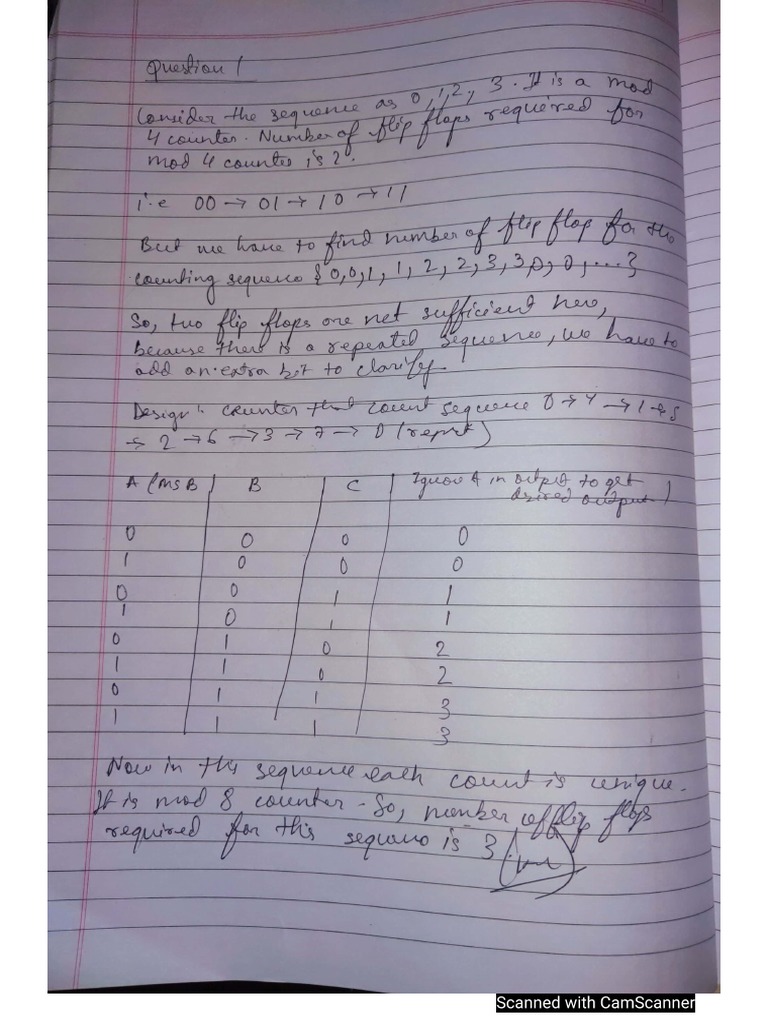 Question 1
Consider the sequence as 0,1,2, 3. It is a mod
4 counter. Number of flip flops required for
mod 4 counter is 2.
i.e 00 → 01 → 10 → 11
But we have to find number of flip flop for the
counting sequence {0,0,1,1,2,2,3,3,0,0,...}
So, two flip flops are not sufficient here,
because there is a repeated sequence, we have to
add an extra bit to clarify.
Design: counter that count sequence 0→4→1→5
→ 2 → 6 → 3 → 7 → 0 (repeat)
A (MSB) B C Ignore A in output to get
desired output)
0 0 0 0
1 0 0 0
0 0 1 1
1 0 1 1
0 1 0 2
1 1 0 2
0 1 1 3
1 1 1 3
Now in this sequence each count is unique.
It is mod 8 counter - So, number of flip flops
required for this sequence is 3
Scanned with CamScanner